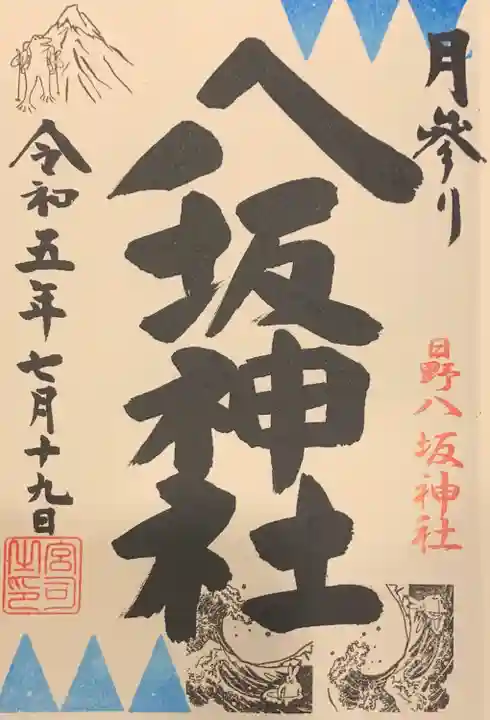 月参り
日野八坂神社
八坂神社
令和五年七月十九日
宮司
之印